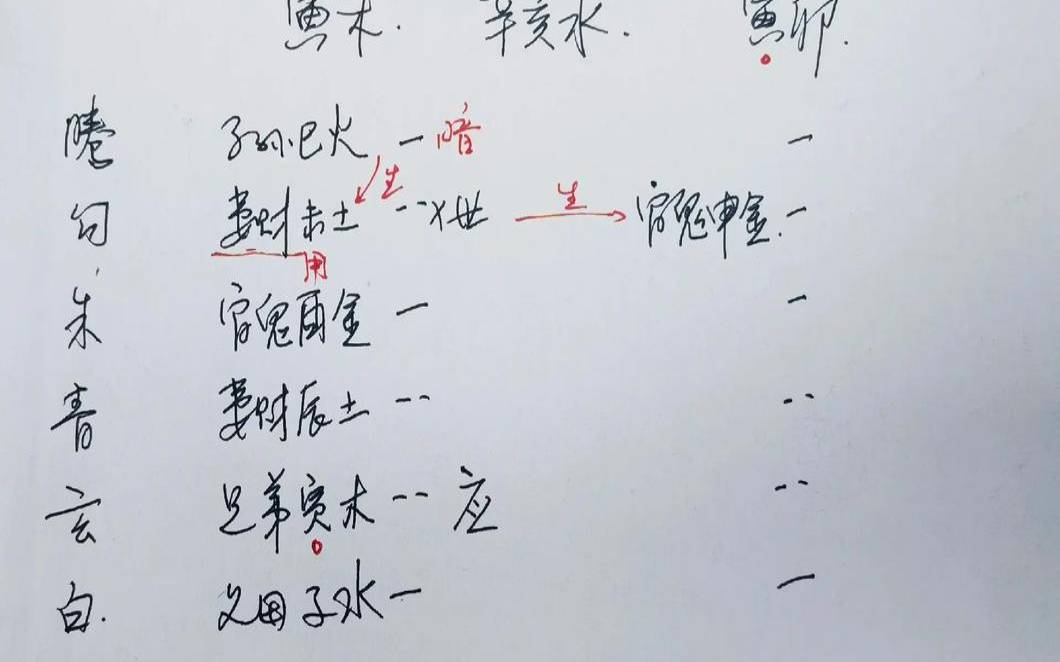 寅木. 辛亥水. 寅卯.
腾 子孙巳火 一 暗 一
生
句 妻财未土 -- x世 生 官鬼申金. 一
用
朱 官鬼酉金 一 一
青 妻财辰土 -- --
玄 兄弟寅木 -- 应 --
白. 父母子水 一 一